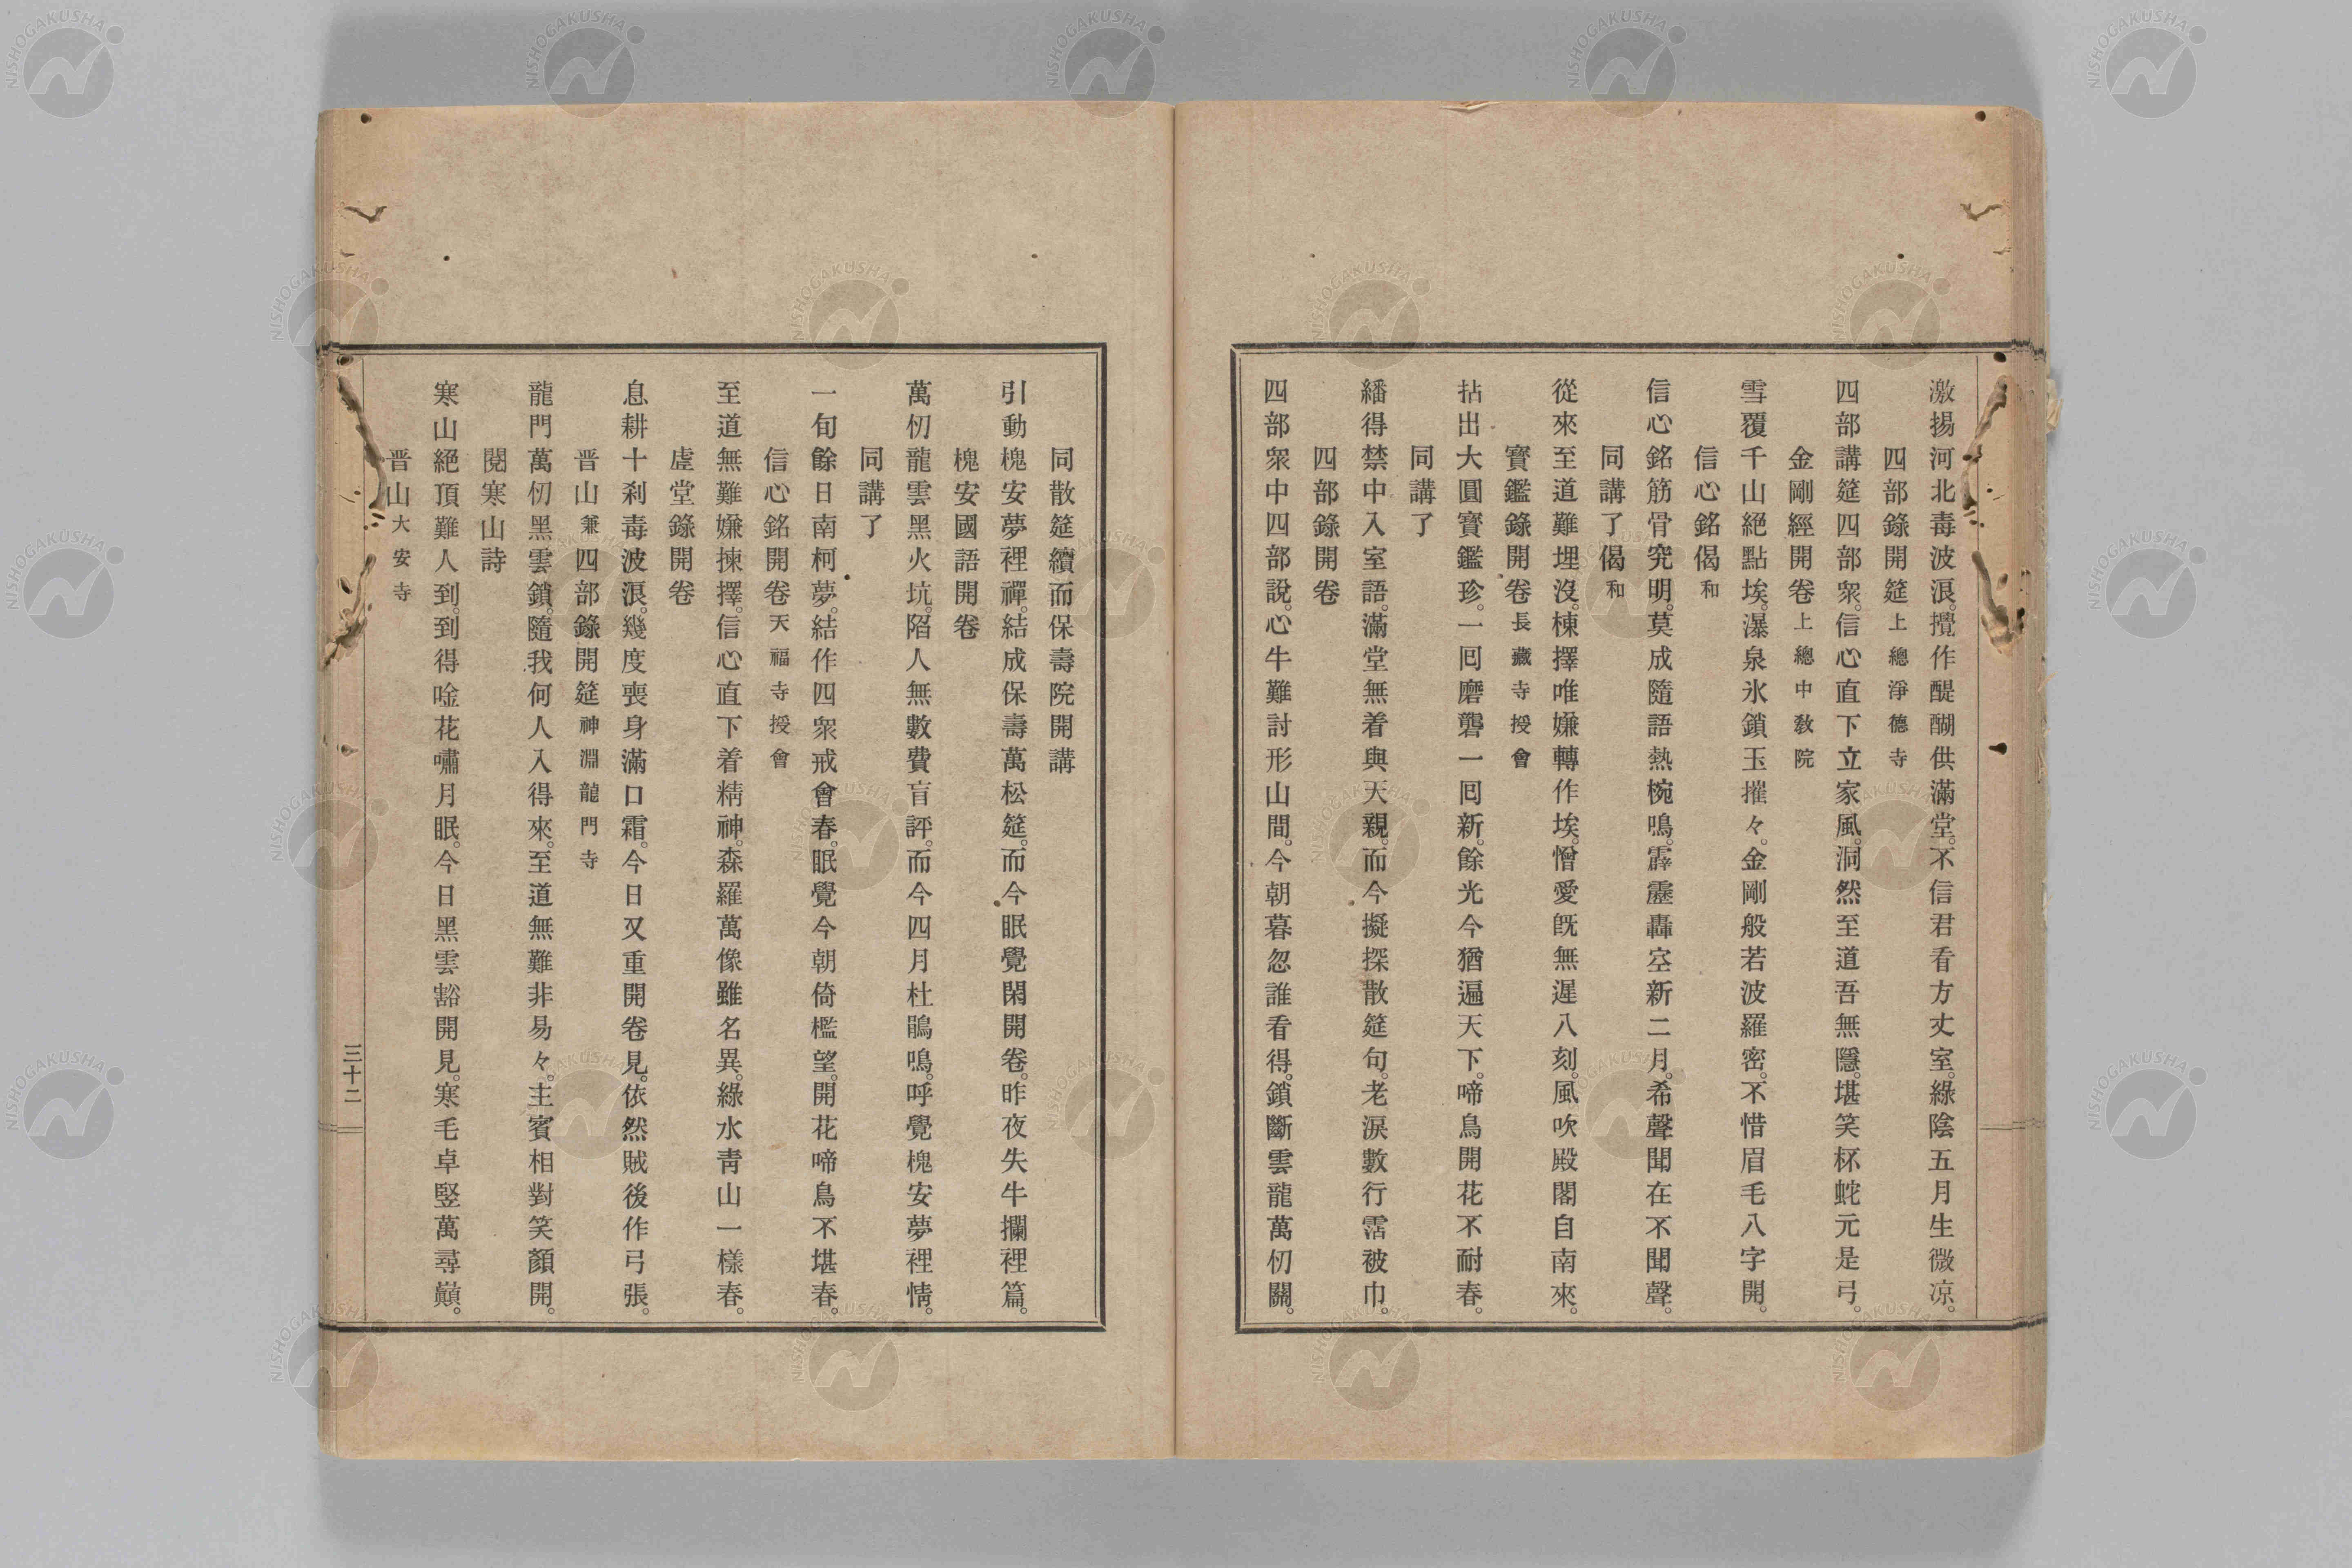 激揚河北毒波浪。攪作醍醐供滿堂。不信君看方丈室。綠陰五月生微凉。
四部錄開筵上總淨德寺
四部講筵四部衆。信心直下立家風。洞然至道吾無隱。堪笑杯蛇元是弓。
金剛經開卷上總中教院
雪覆千山絕點埃。瀑泉氷鎖玉摧々。金剛般若波羅密。不惜眉毛八字開。
信心銘偈和
信心銘筋骨究明。莫成隨語熱椀鳴。霹靂轟空新二月。希聲聞在不聞聲。
同講了偈和
從來至道難埋沒。棟擇唯嫌轉作埃。憎愛旣無遲八刻。風吹殿閣自南來。
寶鑑錄開卷長藏寺授會
拈出大圓寶鑑珍。一回磨礱一回新。餘光今猶遍天下。啼鳥開花不耐春。
同講了
繙得禁中入室語。滿堂無着與天親。而今擬探散筵句。老淚數行霑被巾。
四部錄開卷
四部衆中四部說。心牛難討形山間。今朝暮忽誰看得。鎖斷雲龍萬仞關。
同散筵續而保壽院開講
引動槐安夢裡禪。結成保壽萬松筵。而今眠覺閑開卷。昨夜失牛攔裡篇。
槐安國語開卷
萬仞龍雲黑火坑。陷人無數費盲評。而今四月杜鵑鳴。呼覺槐安夢裡情。
同講了
一旬餘日南柯夢。結作四衆戒會春。眠覺今朝倚檻望。開花啼鳥不堪春。
信心銘開卷天福寺授會
至道無難嫌揀擇。信心直下着精神。森羅萬像雖名異。綠水靑山一樣春。
虛堂錄開卷
息耕十刹毒波浪。幾度喪身滿口霜。今日又重開卷見。依然賊後作弓張。
晋山兼四部錄開筵神淵龍門寺
龍門萬仞黑雲鎖。隨我何人入得來。至道無難非易々。主賓相對笑顏開。
閱寒山詩
寒山絕頂難人到。到得唫花嘯月眠。今日黑雲豁開見。寒毛卓竪萬尋巓。
晋山大安寺
三十二